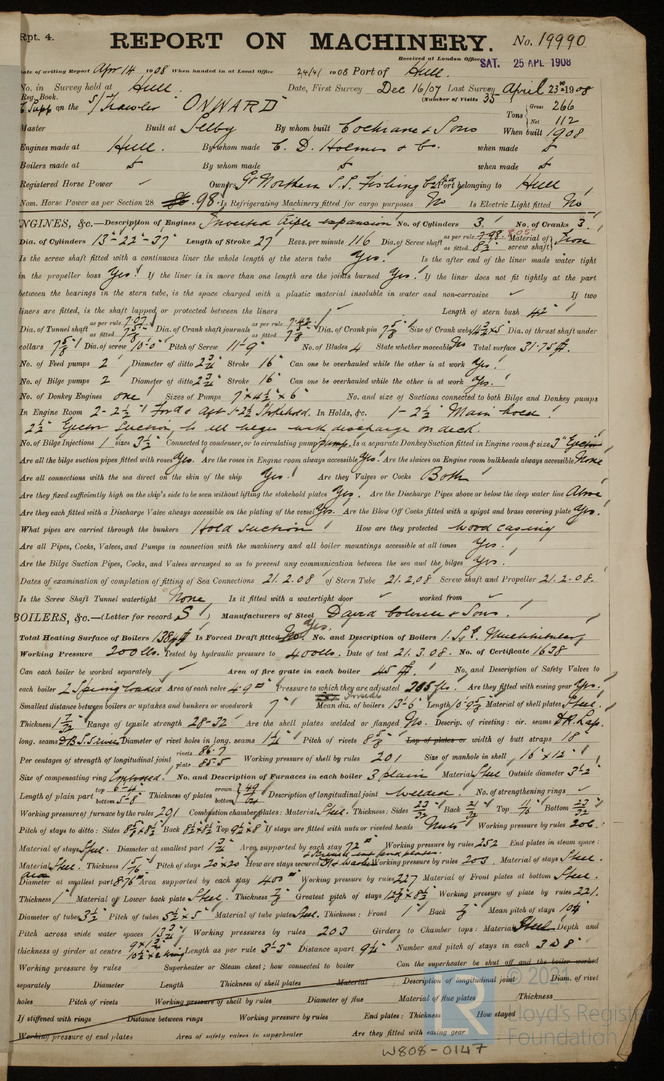 Rpt. 4.
REPORT ON MACHINERY.
No. 19990
Received at London Office SAT. 25 APL 1908
Date of writing Report Apr 14 1908 When handed in at Local Office 24/4/1908 Port of Hull.
No. in Survey held at Hull Date, First Survey Dec 16/07 Last Survey April 23rd 1908
Reg. Book. (Number of Visits 35
on the S/ Trawler "ONWARD" Tons Gross 266 Net 112
Master Built at Selby By whom built Cochrane & Sons When built 1908
Engines made at Hull. By whom made C. D. Holmes & Co. when made
Boilers made at By whom made when made
Registered Horse Power Owners Gt Northern S.S. Fishing Co Ltd Port belonging to Hull
Nom. Horse Power as per Section 28 98 Is Refrigerating Machinery fitted for cargo purposes No Is Electric Light fitted No
ENGINES, &c.—Description of Engines Inverted triple expansion No. of Cylinders 3. No. of Cranks 3.
Dia. of Cylinders 13"-22"-37" Length of Stroke 27 Revs. per minute 116 Dia. of Screw shaft as per rule 7.98 as fitted 8½ Material of screw shaft Iron
Is the screw shaft fitted with a continuous liner the whole length of the stern tube Yes. Is the after end of the liner made water tight
in the propeller boss Yes. If the liner is in more than one length are the joints burned Yes. If the liner does not fit tightly at the part
between the bearings in the stern tube, is the space charged with a plastic material insoluble in water and non-corrosive If two
liners are fitted, is the shaft lapped or protected between the liners Length of stern bush 42"
Dia. of Tunnel shaft as per rule 7.07 as fitted 7⅝ Dia. of Crank shaft journals as per rule 7.42 as fitted 7⅝ Dia. of Crank pin 7⅝ Size of Crank webs 14¾ x 5 Dia. of thrust shaft under
collars 7⅝ Dia. of screw 10'-0" Pitch of Screw 11'-9" No. of Blades 4 State whether moveable No Total surface 31.75 ft.
No. of Feed pumps 2 Diameter of ditto 2¾ Stroke 16" Can one be overhauled while the other is at work Yes.
No. of Bilge pumps 2 Diameter of ditto 2¾ Stroke 16" Can one be overhauled while the other is at work Yes.
No. of Donkey Engines one Sizes of Pumps 7" x 4½" x 6" No. and size of Suctions connected to both Bilge and Donkey pumps
In Engine Room 2-2½" Ford & Aft 1-2½ Stokehold. In Holds, &c. 1-2½" Main hold
2½ Ejector Suction to all bilges with discharge on deck.
No. of Bilge Injections 1 sizes 3½ Connected to condenser, or to circulating pump pump. Is a separate Donkey Suction fitted in Engine room & size 3" Ejector
Are all the bilge suction pipes fitted with roses Yes. Are the roses in Engine room always accessible Yes. Are the sluices on Engine room bulkheads always accessible None
Are all connections with the sea direct on the skin of the ship Yes. Are they Valves or Cocks Both
Are they fixed sufficiently high on the ship's side to be seen without lifting the stokehold plates Yes. Are the Discharge Pipes above or below the deep water line Above
Are they each fitted with a Discharge Valve always accessible on the plating of the vessel Yes. Are the Blow Off Cocks fitted with a spigot and brass covering plate Yes.
What pipes are carried through the bunkers Hold suction How are they protected Wood casing
Are all Pipes, Cocks, Valves, and Pumps in connection with the machinery and all boiler mountings accessible at all times Yes.
Are the Bilge Suction Pipes, Cocks, and Valves arranged so as to prevent any communication between the sea and the bilges Yes.
Dates of examination of completion of fitting of Sea Connections 21.2.08 of Stern Tube 21.2.08 Screw shaft and Propeller 21.2.08.
Is the Screw Shaft Tunnel watertight None Is it fitted with a watertight door worked from
BOILERS, &c.—(Letter for record S) Manufacturers of Steel David Colville & Sons
Total Heating Surface of Boilers Is Forced Draft fitted No. No. and Description of Boilers 1. S.E. Multitubular
Working Pressure 200 lbs. Tested by hydraulic pressure to 400 lbs. Date of test 21.3.08 No. of Certificate 1638
Can each boiler be worked separately Area of fire grate in each boiler 45 ft. No. and Description of Safety Valves to
each boiler 2 Spring loaded Area of each valve 4.9" Pressure to which they are adjusted 205 lbs. Are they fitted with easing gear Yes.
Smallest distance between boilers or uptakes and bunkers or woodwork 7" Mean dia. of boilers 13'-6" Length 10'-0½ Material of shell plates Steel.
Thickness 1 7/32 Range of tensile strength 28-32 Are the shell plates welded or flanged No. Descrip. of riveting: cir. seams D.R. Lap
long. seams D.B.S. Diameter of rivet holes in long. seams 1¼ Pitch of rivets 8⅝ Lap of plates or width of butt straps 18"
Per centages of strength of longitudinal joint rivets 86.7 plate 85.5 Working pressure of shell by rules 201 Size of manhole in shell 16" x 12"
Size of compensating ring No. and Description of Furnaces in each boiler 3 plain Material Steel Outside diameter 3'-2
Length of plain part top 6'-4" bottom 5'-8" Thickness of plates crown bottom 49/64 Description of longitudinal joint Welded. No. of strengthening rings
Working pressure of furnace by the rules 201 Combustion chamber plates: Material Steel. Thickness: Sides 23/32 Back 21/32 Top 11/16 Bottom 23/32
Pitch of stays to ditto: Sides Back Top If stays are fitted with nuts or riveted heads Nuts Working pressure by rules 206
Material of stays Steel. Diameter at smallest part Area supported by each stay 72" Working pressure by rules 252 End plates in steam space:
Material Steel. Thickness Pitch of stays 20 x 20 How are stays secured Working pressure by rules 203 Material of stays Steel.
Area Diameter at smallest part 8.76" Area supported by each stay 400" Working pressure by rules 227 Material of Front plates at bottom Steel.
Thickness 1" Material of Lower back plate Steel. Thickness ⅞ Greatest pitch of stays Working pressure of plate by rules 221.
Diameter of tubes 3½ Pitch of tubes 5 x 5" Material of tube plates Steel. Thickness: Front 1" Back ⅞ Mean pitch of stays 10¼
Pitch across wide water spaces 13¾ Working pressures by rules 203 Girders to Chamber tops: Material Steel Depth and
thickness of girder at centre Length as per rule Distance apart 9¼ Number and pitch of stays in each 3 @ 8"
Working pressure by rules Superheater or Steam chest; how connected to boiler Can the superheater be shut off and the boiler worked
separately Diameter Length Thickness of shell plates Material Description of longitudinal joint Diam. of rivet
holes Pitch of rivets Working pressure of shell by rules Diameter of flue Material of flue plates Thickness
If stiffened with rings Distance between rings Working pressure by rules End plates: Thickness How stayed
Working pressure of end plates Area of safety valves to superheater Are they fitted with easing gear
© 2021
Lloyd's Register
Foundation
W808-0147